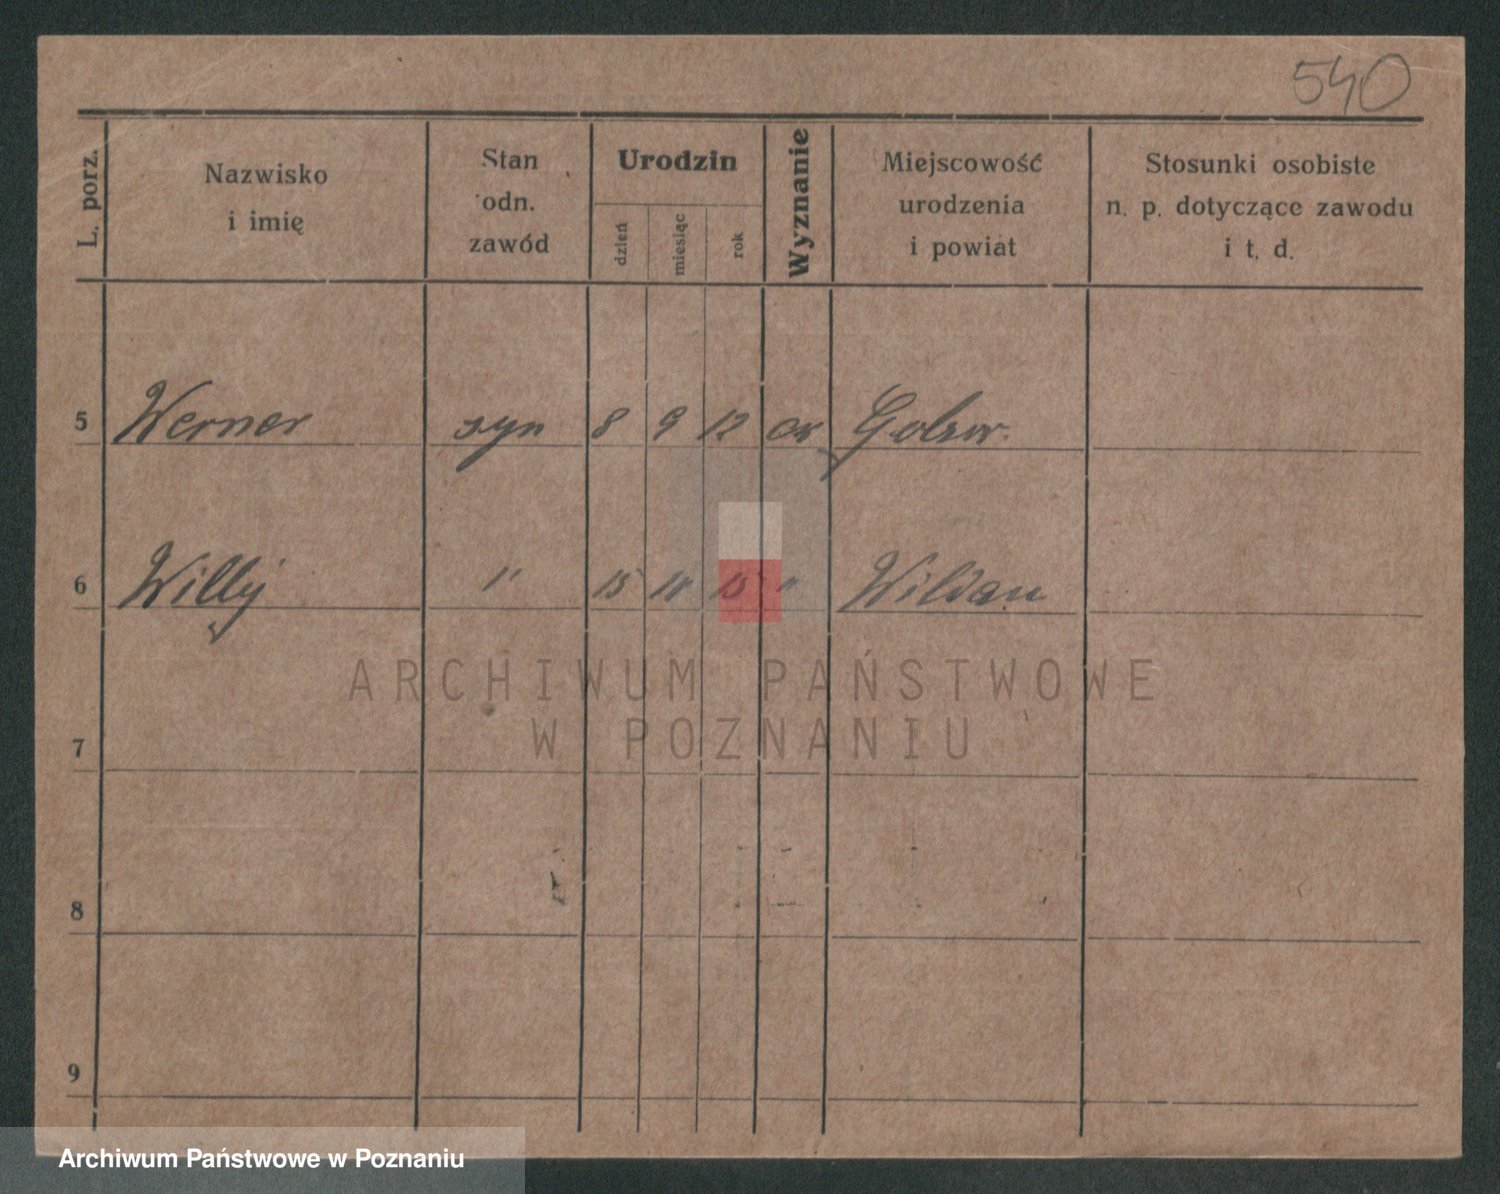 540
L. porz.
Nazwisko
i imię
Stan
odn.
zawód
Urodzin
dzień
miesiąc
rok
Wyznanie
Miejscowość
urodzenia
i powiat
Stosunki osobiste
n. p. dotyczące zawodu
i t. d.
5 Werner syn 8 9 12
6 Willy " 15 15 " Wildau
ARCHIWUM PAŃSTWOWE
W POZNANIU
7
8
9
Archiwum Państwowe w Poznaniu